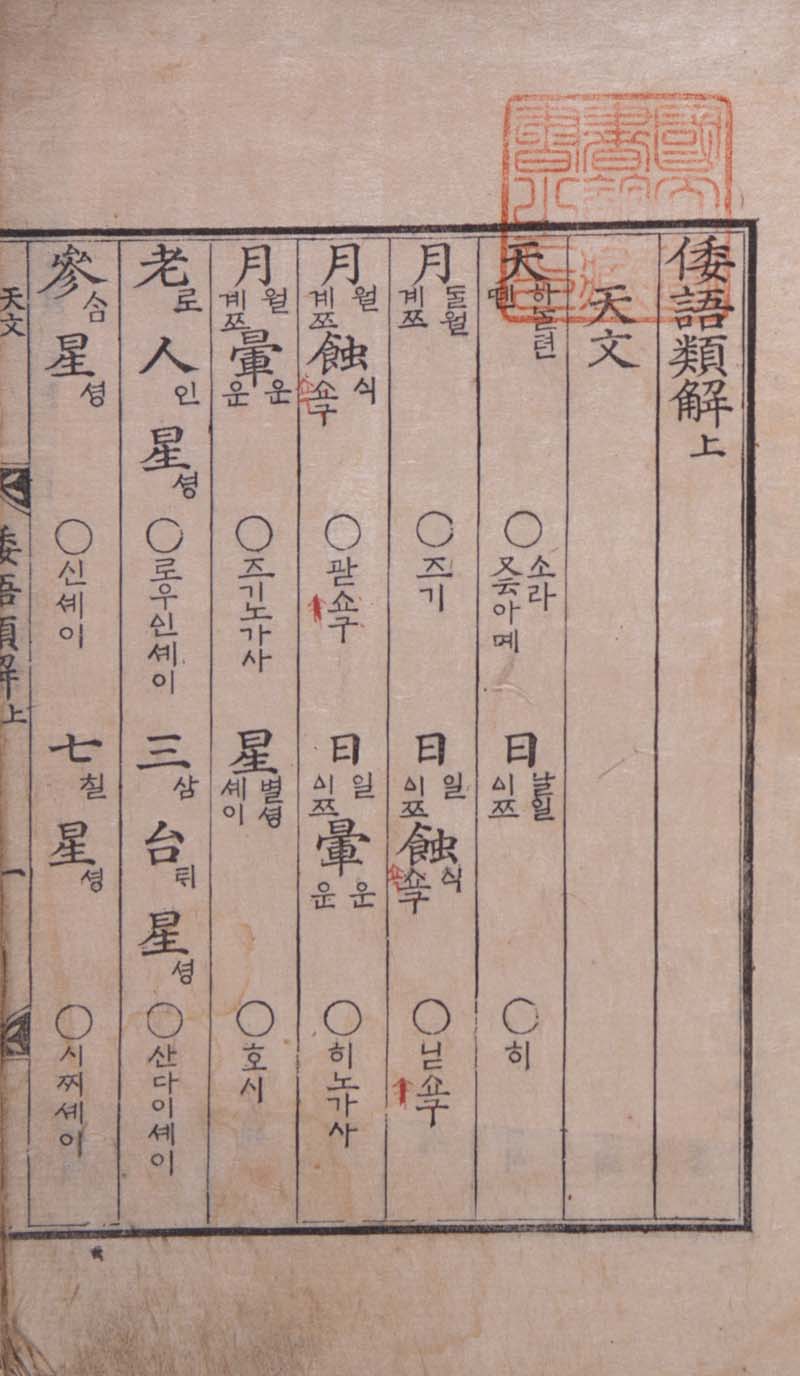 倭語類解上
天文
天 하ᄂᆞᆯ텬 뗀 ○ 소라 又云아몌 日 날일 싀쯔 ○ 히
月 ᄃᆞᆯ월 계쯔 ○ 즈기 日 일 싀쯔 蝕 식 쇼구 ○ 닏쇼구
月 월 계쯔 蝕 식 쇼구 ○ 괃쇼구 日 일 싀쯔 暈 운 운 ○ 히노가사
月 월 계쯔 暈 운 운 ○ 즈기노가사 星 별셩 셰이 ○ 호시
老 로 人 인 星 셩 ○ 로우신셰이 三 삼 台 ᄐᆡ 星 셩 ○ 산다이셰이
參 ᄉᆞᆷ 星 셩 ○ 신셰이 七 칠 星 셩 ○ 시찌셰이
天文 倭語類解上 一